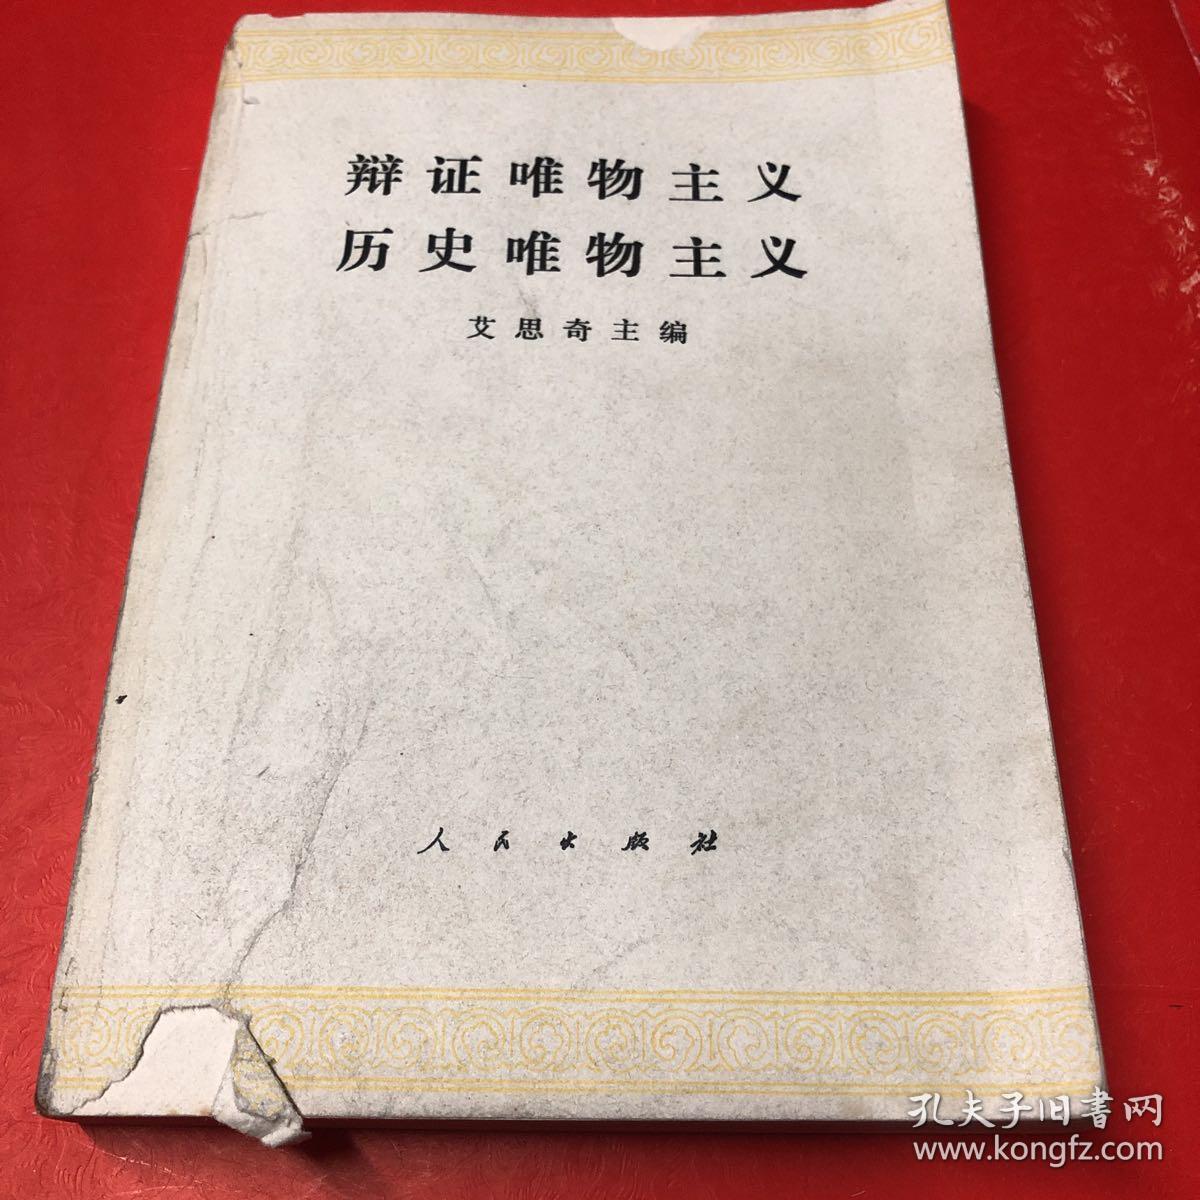 辩证唯物主义
历史唯物主义
艾思奇主编
人民出版社
孔夫子旧书网
www.kongfz.com